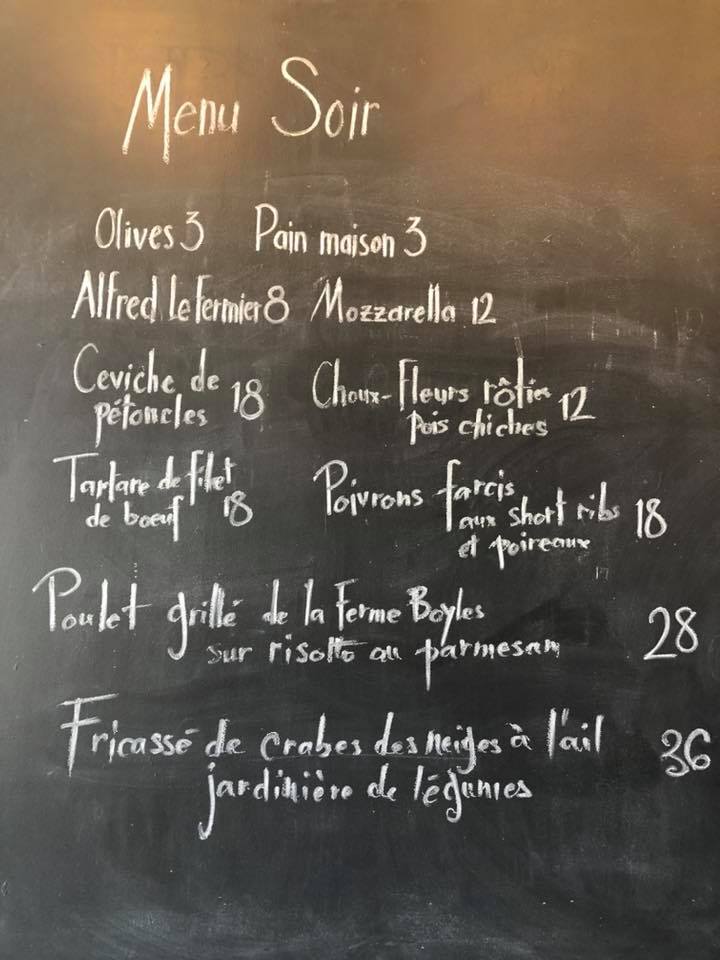 Menu Soir
Olives 3 Pain maison 3
Alfred le Fermier 8 Mozzarella 12
Ceviche de
pétoncles 18
Choux-Fleurs rôties
pois chiches 12
Tartare de filet
de boeuf 18
Poivrons farcis
aux short ribs 18
et poireaux
Poulet grillé de la Ferme Boyles
sur risotto au parmesan 28
Fricassé de crabes des Neiges à l'ail 36
jardinière de légumes